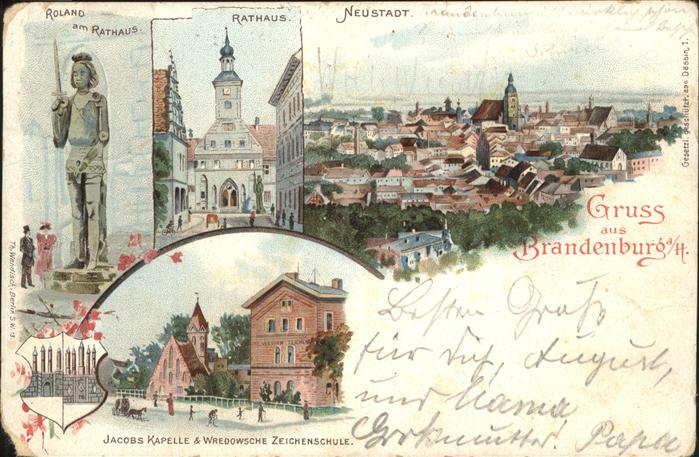 ROLAND
am RATHAUS.
RATHAUS.
NEUSTADT.
Gesetzl. geschützt. 200 Dessin. 1.
Gruss
aus
Brandenburg a/H.
Th. Wendisch, Berlin S.W. 13.
Besten Gruß
für dich, August,
und Mama,
Großmutter. Papa
JACOBS KAPELLE & WREDOWSCHE ZEICHENSCHULE.